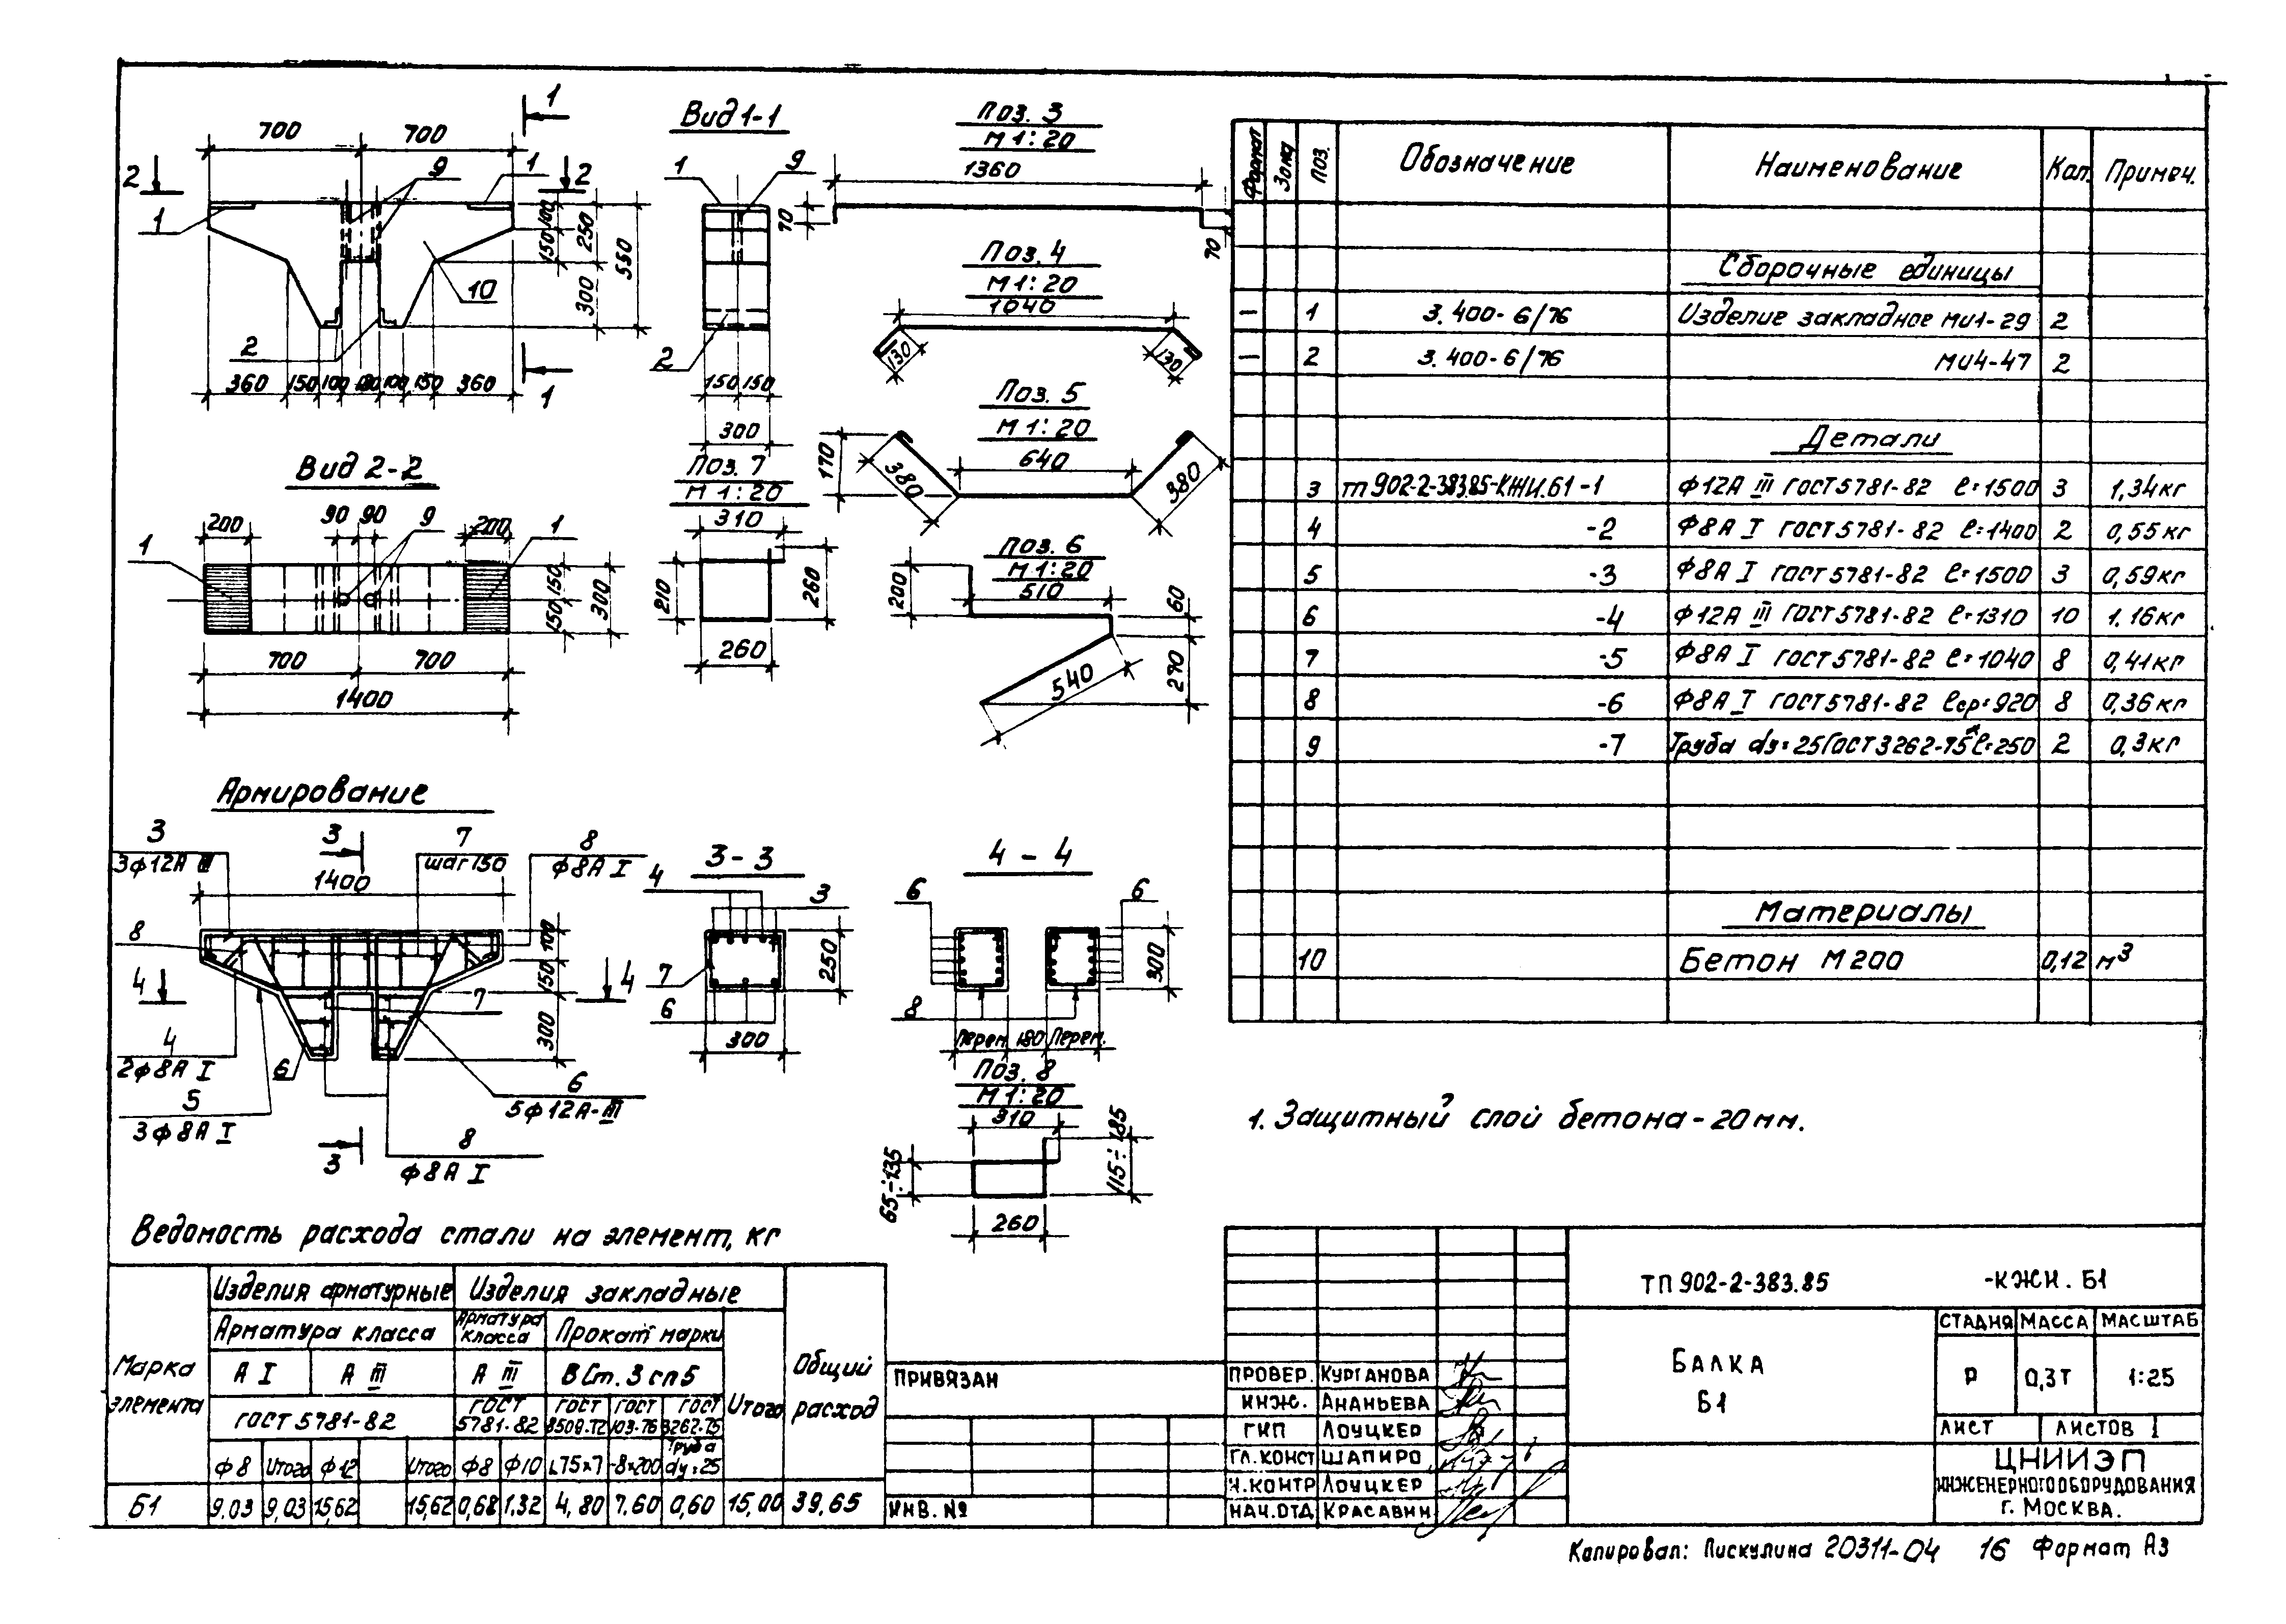 1
700 700
2 9 1 2
1
100
150
250
300
550
10
2
360 150 100 180 100 150 360
1
Вид 1-1
1 9
2
150 150
300
Поз. 3
М 1:20
1360
70
70
Поз. 4
М 1:20
1040
130 130
Поз. 5
М 1:20
170
380 640 380
Вид 2-2
200 90 90 9 200 1
1
150 150
300
700 700
1400
Поз. 7
М 1:20
310
210 260
260
Поз. 6
М 1:20
510
200 60
540 290
Формат Зона Поз. Обозначение Наименование Кол. Примеч.
Сборочные единицы
— 1 3.400-6/76 Изделие закладное МИ1-29 2
— 2 3.400-6/76 МИ4-47 2
Детали
3 ТП902-2-383.85-КЖИ.Б1-1 Ф12А III ГОСТ 5781-82 ℓ=1500 3 1,34кг
4 -2 Ф8А I ГОСТ 5781-82 ℓ=1400 2 0,55кг
5 -3 Ф8А I ГОСТ 5781-82 ℓ=1500 3 0,59кг
6 -4 Ф12А III ГОСТ 5781-82 ℓ=1310 10 1.16кг
7 -5 Ф8А I ГОСТ 5781-82 ℓ=1040 8 0,41кг
8 -6 Ф8А I ГОСТ 5781-82 ℓср=920 8 0,36кг
9 -7 Труба dу=25 ГОСТ 3262-75* ℓ=250 2 0,3кг
Материалы
10 Бетон М200 0,12 м³
Армирование
3
3ф12А III
3
7
шаг 150
8
ф8А I
1400
8
100
150
300
4 4
7
4
2ф8А I
6
5
3ф8А I
6
5ф12А-III
3
8
ф8А I
3-3
4 3
7
6
250
300
4-4
6 6
8
300
Перем. 180 Перем.
Поз. 8
М 1:20
310
65÷135 115÷185
260
1. Защитный слой бетона - 20 мм.
Ведомость расхода стали на элемент, кг
Марка элемента
Изделия арматурные Изделия закладные
Арматура класса Арматура класса Прокат марки
А I А III А III ВСт.3сп5
ГОСТ 5781-82 ГОСТ 5781-82 ГОСТ 8509-72 ГОСТ 103-76 ГОСТ 3262-75
Итого Общий расход
ф8 Итого ф12 Итого ф8 ф10 L75х7 -8х200 Труба dу=25
Б1 9.03 9,03 15,62 15,62 0,68 1.32 4,80 7.60 0,60 15,00 39,65
ПРИВЯЗАН
ИНВ. №
ПРОВЕР. КУРГАНОВА
ИНЖ. АНАНЬЕВА
ГИП ЛОУЦКЕР
ГЛ.КОНСТ ШАПИРО
Н.КОНТР ЛОУЦКЕР
НАЧ.ОТД КРАСАВИН
ТП 902-2-383.85 -КЖИ.Б1
БАЛКА
Б1
СТАДИЯ МАССА МАСШТАБ
Р 0,3Т 1:25
ЛИСТ ЛИСТОВ 1
ЦНИИЭП
ИНЖЕНЕРНОГО ОБОРУДОВАНИЯ
г. МОСКВА.
Копировал: Пискулина 20311-04 16 Формат А3